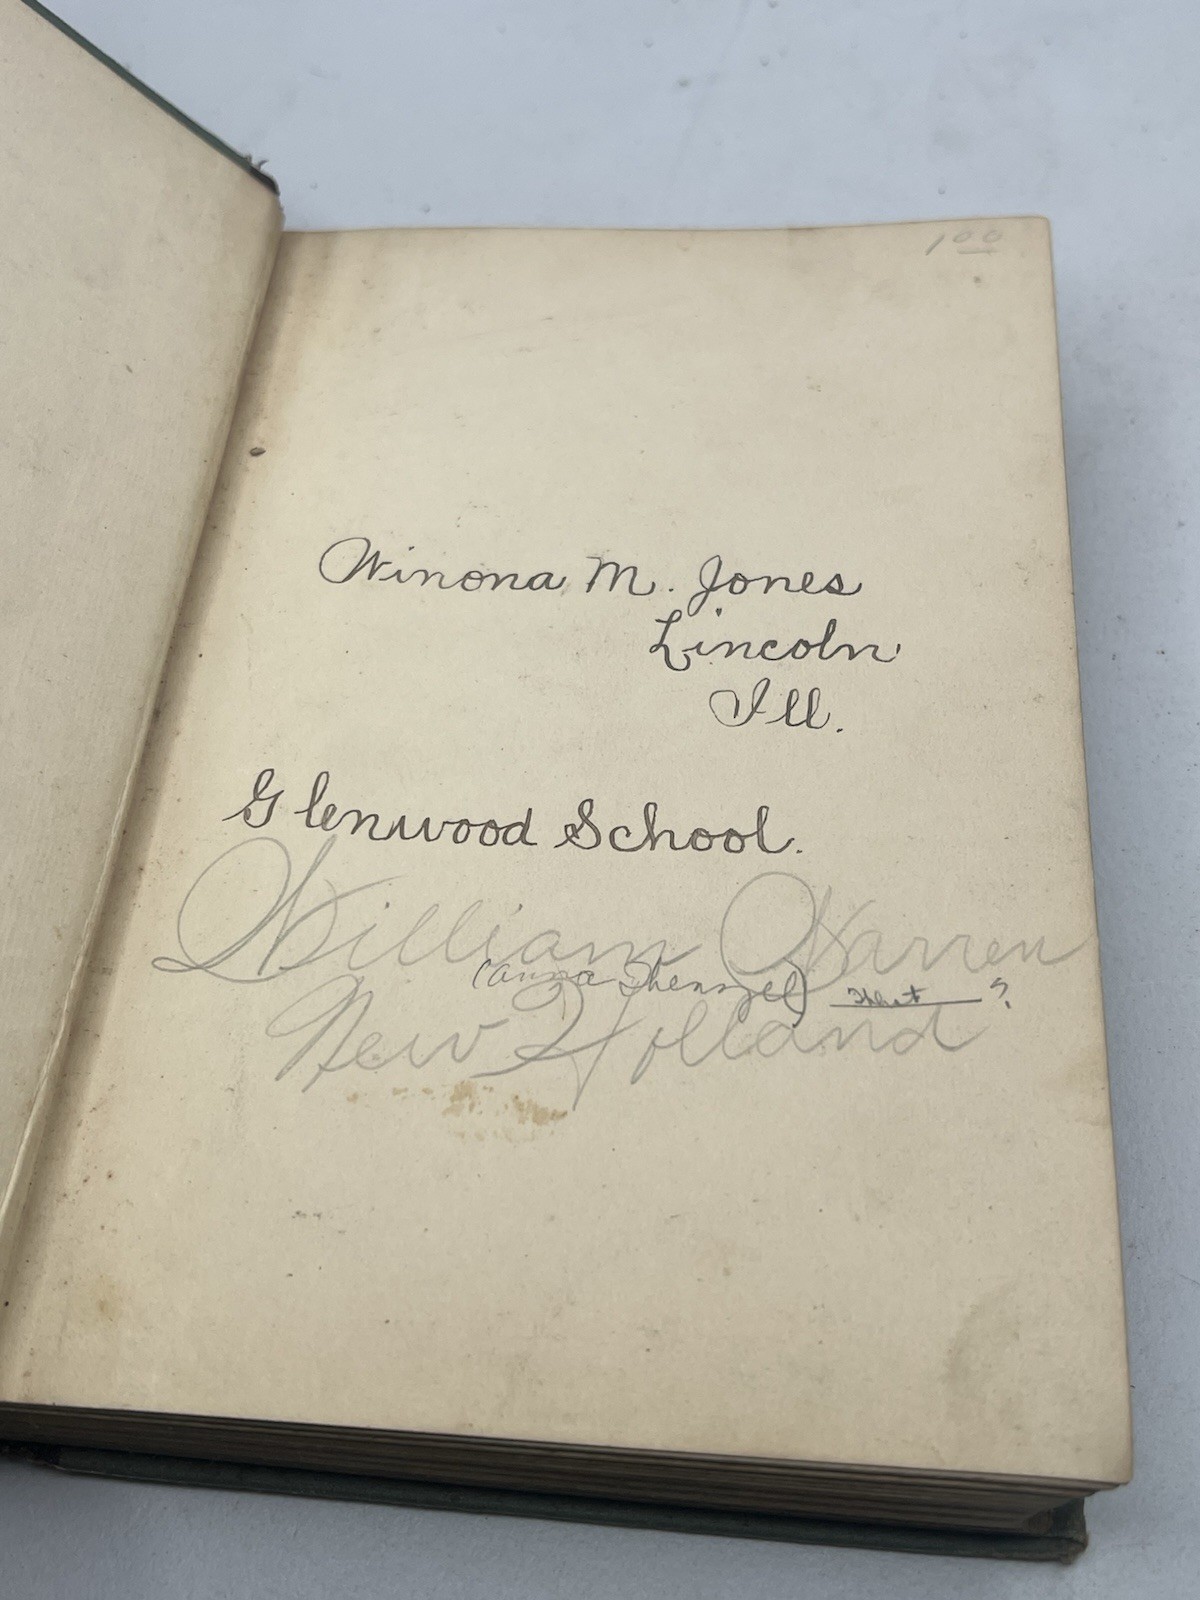 1 00
Winona M. Jones
Lincoln
Ill.
Glenwood School.
William Warren
(anna
?
New Holland